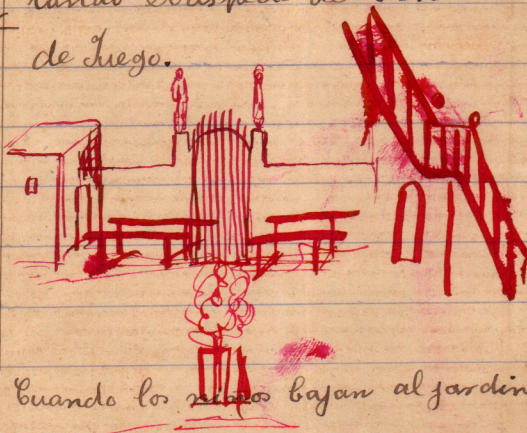 de Juego.
Cuando los niños bajan al jardin